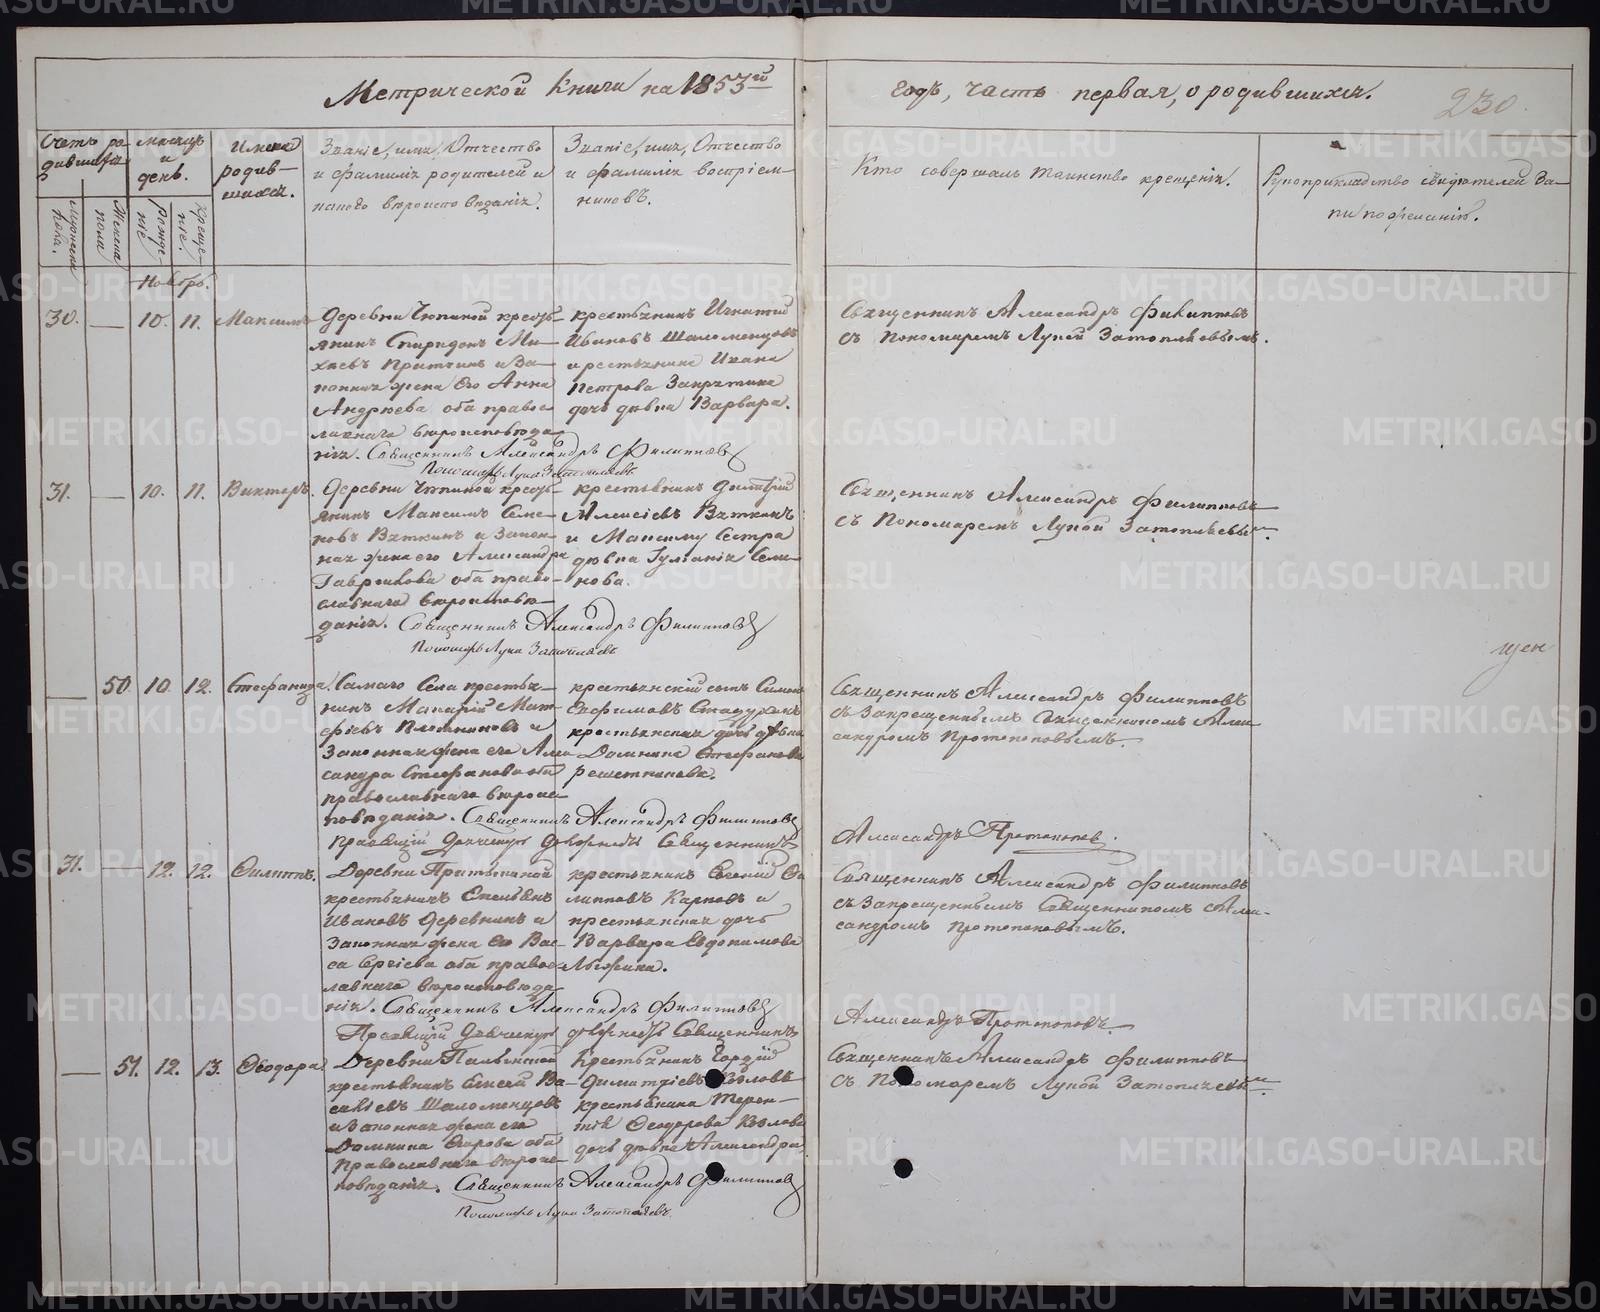 Метрической Книги на 1853й
годъ, часть первая, о родившихся.
230
Счетъ ро-
дившихся
Мужеска
пола.
Женска
пола
месяцъ
и
день.
Рожде-
ніе
Креще-
ніе.
Имена
родив-
шихся.
Званіе, имя, Отчество
и фамилія родителей и
какого вѣроисповѣданія.
Званіе, имя, Отчество
и фамилія воспріем-
никовъ.
Кто совершалъ таинство крещенія.
Рукоприкладство свидѣтелей за-
писи по желанію.
Ноябрь.
30. — 10. 11. Максимъ
крес-
янинъ Спиридонъ Ми-
и за-
конная жена его Анна
Андреева оба правос-
лавнаго вѣроисповѣда-
нія. Священникъ Александръ Филипповъ
Пономарь Лука Затопляевъ
крестьянинъ Игнатій
Ивановъ Шаломенцовъ
и крестьянина Ивана
Петрова
дочь дѣвка Варвара.
Священникъ Александръ Филипповъ
съ Пономаремъ Лукой Затопляевымъ.
31. — 10. 11. Викторъ.
янинъ Максимъ Семе-
новъ Вяткинъ и Закон-
ная жена его Александра
Гаврилова оба право-
славнаго вѣроисповѣ-
данія. Священникъ Александръ Филипповъ
Пономарь Лука Затопляевъ
крестьянинъ Димитрій
Алексіевъ Вяткинъ
и Максиму Сестра
дѣвка Іуліанія Семе-
нова.
Священникъ Александръ Филипповъ
съ Пономаремъ Лукой Затопляевым.
— 50. 10. 12. Стефанида.
Самаго Села крестья-
нинъ Макарій Мат-
фіевъ Плотниковъ и
Законная жена его Алек-
сандра Стефанова оба
православнаго вѣроис-
повѣданія. Священникъ Александръ Филипповъ
Правящій должность Священникъ
Александръ Протопоповъ.
крестьянскій сынъ Симеонъ
Евфимовъ
крестьянская дочь дѣвка
Домника Стефанова
Решетникова.
Священникъ Александръ Филипповъ
съ Запрещеннымъ Священникомъ Алек-
сандромъ Протопоповымъ.
31. — 12. 12. Филиппъ.
Деревни
крестьянинъ Емельянъ
Ивановъ Деревнинъ и
Законная жена его Вас-
са Сергіева оба правос-
лавнаго вѣроисповѣда-
нія. Священникъ Александръ Филипповъ
Правящій должность Священникъ
Александръ Протопоповъ.
крестьянинъ Евгеній Фи-
липповъ Карповъ и
крестьянская дочь
Варвара Евдокимова
Лыжина.
Священникъ Александръ Филипповъ
съ Запрещеннымъ Священникомъ Алек-
сандромъ Протопоповымъ.
— 51. 12. 13. Ѳеодора
Деревни
крестьянинъ Елисей Ва-
силіевъ Шаломенцовъ
и Законная жена его
Домника Егорова оба
Православнаго вѣроис-
повѣданія. Священникъ Александръ Филипповъ
Пономарь Лука Затопляевъ.
Крестьянинъ Гордій
Димитріевъ Козловъ
крестьянина Терен-
тія Ѳеодорова Козлова
дочь дѣвка Александра.
Священникъ Александръ Филипповъ
съ Пономаремъ Лукой Затопляевым.
METRIKI.GASO-URAL.RU